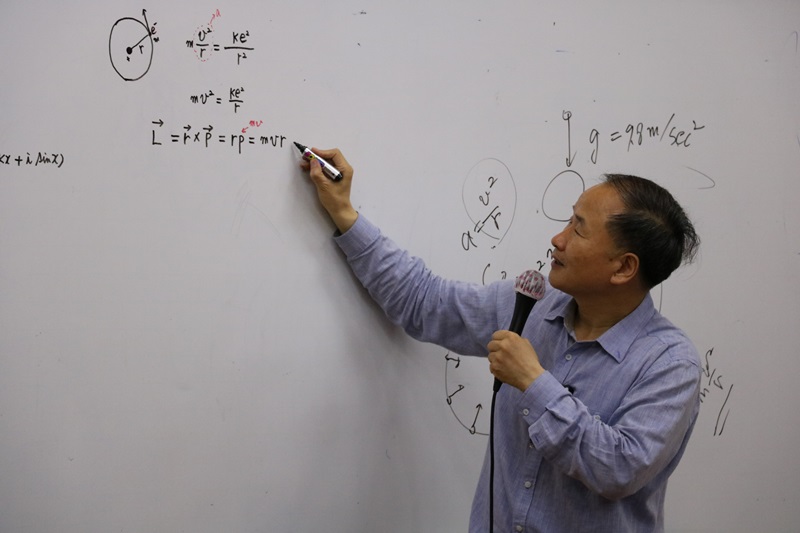 e⁻
r
a
m v²/r = ke²/r²
mv² = ke²/r
mv
L⃗ = r⃗ × p⃗ = rp = mvr
x + i sinx)
g = 9.8 m/sec²
a = v²/r